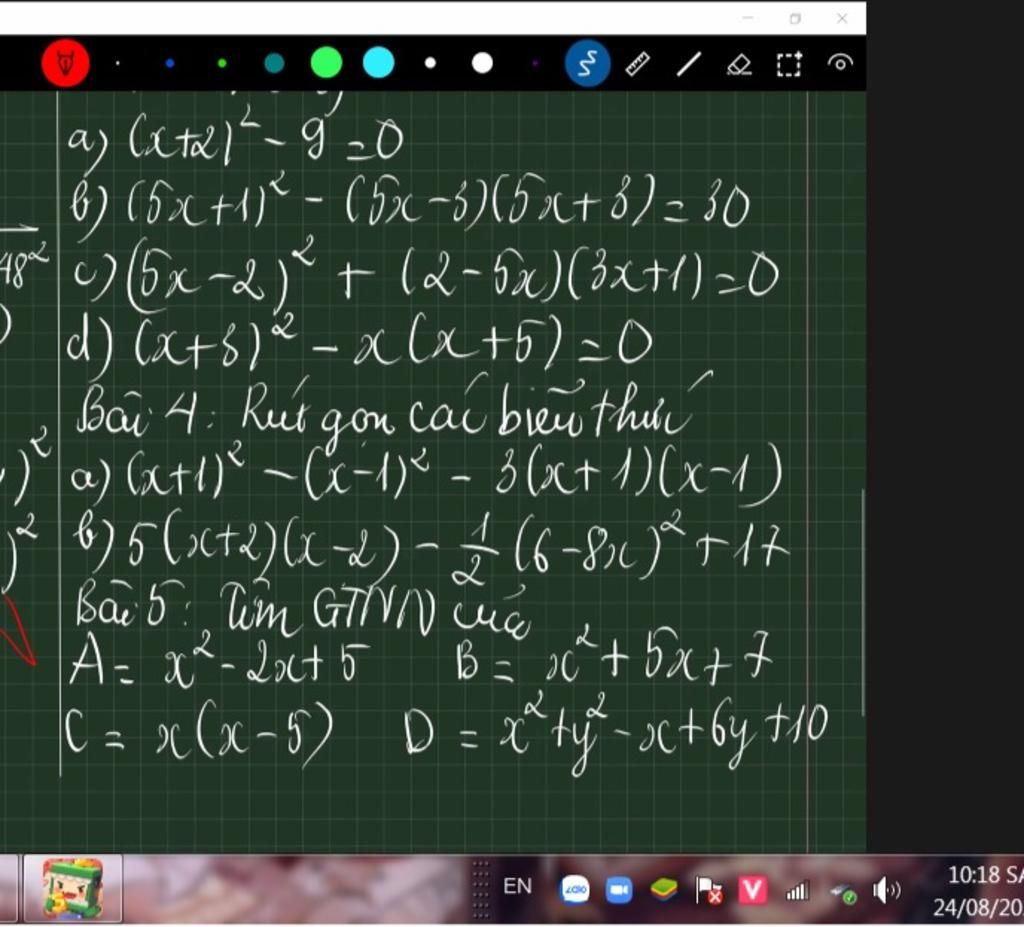 a) (x+2)² - 9 = 0
b) (5x+1)² - (5x-3)(5x+3) = 30
48²
c) (5x-2)² + (2-5x)(3x+1) = 0
d) (x+3)² - x(x+5) = 0
Bài 4: Rút gọn các biểu thức
)² a) (x+1)² - (x-1)² - 3(x+1)(x-1)
)² b) 5(x+2)(x-2) - 1/2 (6-8x)² + 17
Bài 5: Tìm GTNN của
A = x² - 2x + 5 B = x² + 5x + 7
C = x(x-5) D = x² + y² - x + 6y + 10
EN Zalo V 10:18 SA
24/08/20